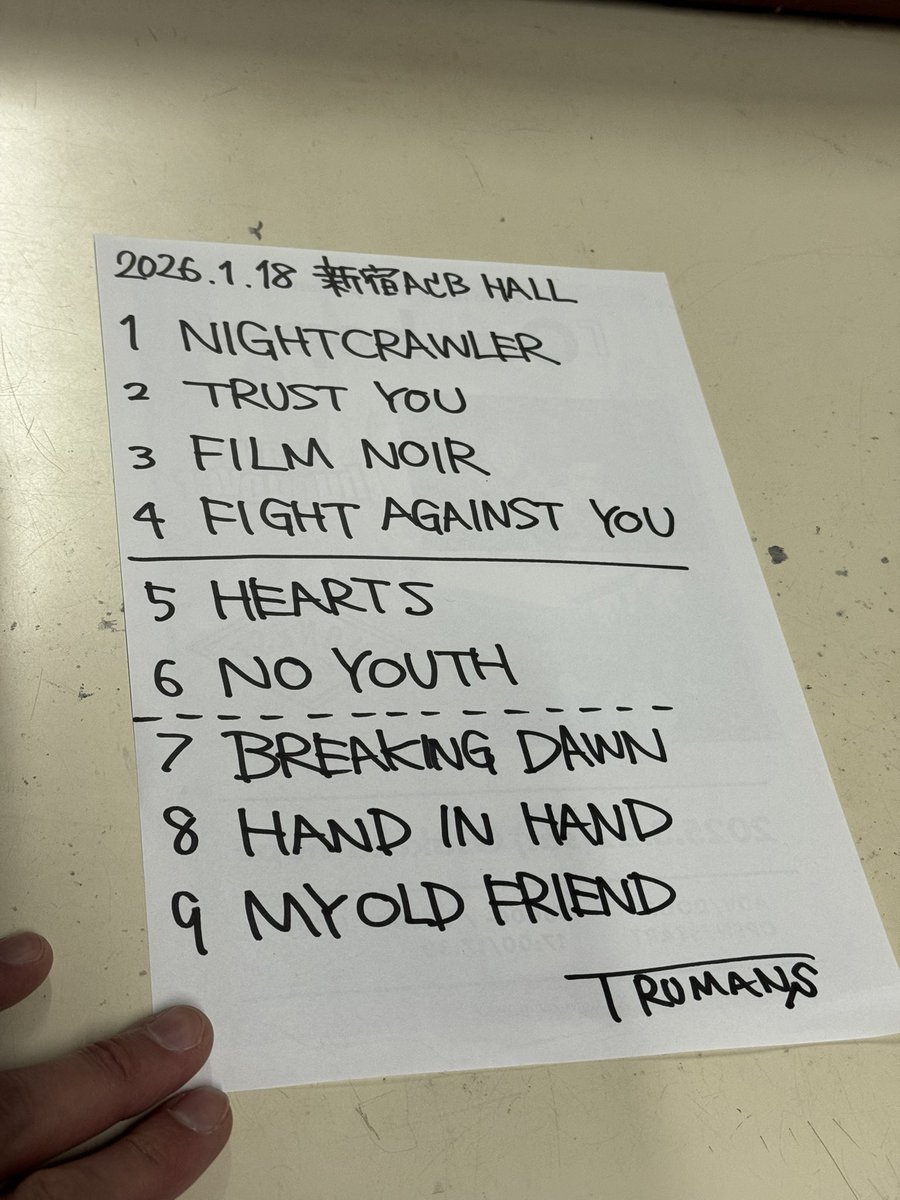 2026.1.18 新宿ACB HALL
1 NIGHTCRAWLER
2 TRUST YOU
3 FILM NOIR
4 FIGHT AGAINST YOU
5 HEARTS
6 NO YOUTH
7 BREAKING DAWN
8 HAND IN HAND
9 MY OLD FRIEND
TROMANS